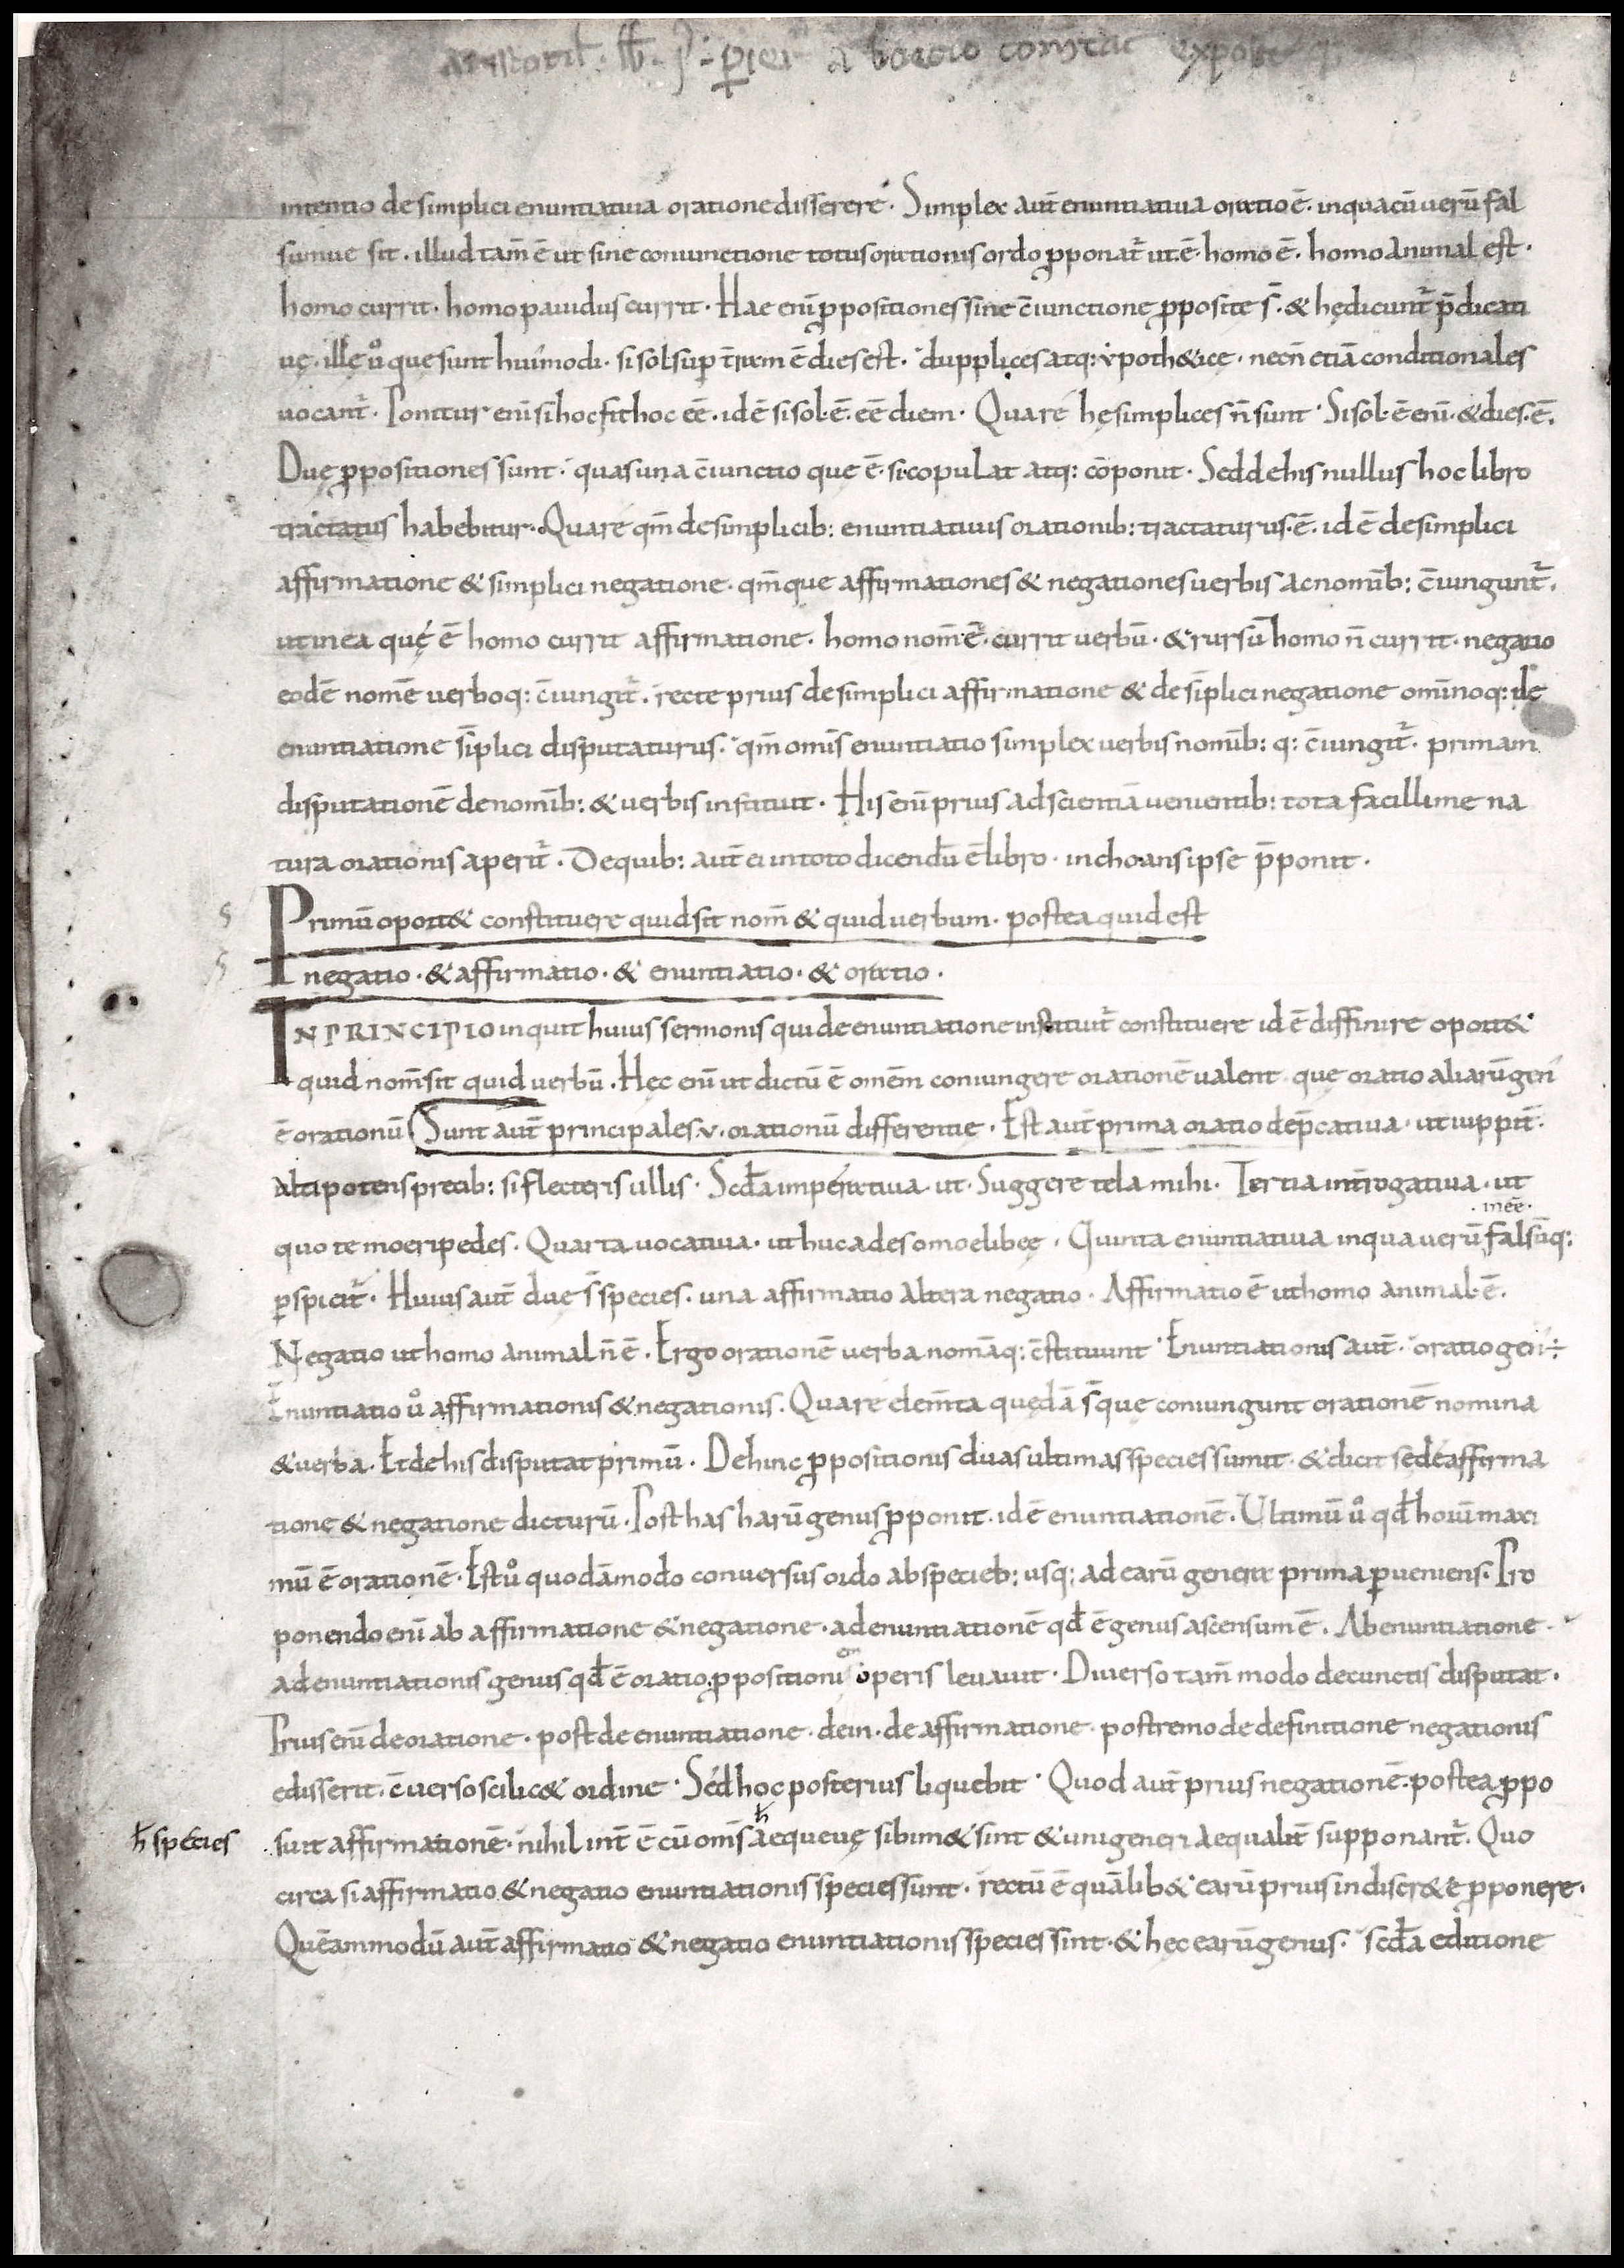 aristotil. lib. j. perier a boecio comtat exposit
intentio desimplici enuntiatiua oratione disserere. Simplex aut̄ enuntiatiua oratio ē. inquacū uerū fal
sumue sit. illud tam̄ ē ut sine coniunctione totus orationis ordo ꝓponat̄ ut. ē. homo ē. homo animal est.
homo currit. homo pauidus currit. Hae eni ꝓpositiones sine c̄iunctione ꝓposite s̄. & hędicunt̄ p̄dicati
uę. illę ů que sunt hui᾽modi. si sol sup̄ t̄ram ē dies est. dupplices atq: ypoth&icę. necn̄ etiā conditionales
uocant̄. Ponitur eni si hoc sit hoc eē. id ē si sol. ē. eē diem. Quare hę simplices n̄ sunt. Si sol. ē eni. & dies. ē.
Duę ꝓpositiones sunt. quas una c̄iunctio que ē. si copulat atq: cōponit. Sed dehis nullus hoc libro
tractatus habebitur. Quare qm̄ de simplicib: enuntiatiuis orationib: tractaturus. ē. id ē desimplici
affirmatione & simplici negatione. qm̄que affirmationes & negationes uerbis ac nomīb: c̄iungunt̄.
ut in ea quę ē homo currit affirmatione. homo nom̄ ē. currit uerbū. & rursū homo n̄ currit. negatio
eodē nomē uerboq: c̄iungit̄. recte prius desimplici affirmatione & de sīplici negatione omīnoq: de
enuntiatione sīplici disputaturus. qm̄ omīs enuntiatio simplex uerbis nomīb: q: c̄iungit̄. primam
disputationē denomīb: & uerbis instituit. His eni prius ad scientiā uenientib: tota facillime na
tura orationis aperit̄. De quib: aut̄ ei in toto dicendū ē libro. inchoans ipse p̄ponit.
Primū oport& constituere quid sit nom̄ & quid uerbum. postea quid est
negatio. & affirmatio. & enuntiatio. & oratio.
IN PRINCIPIO inquit huius sermonis qui de enuntiatione instituit̄ constituere id ē diffinire oport&
quid nom̄ sit quid uerbū. Hęc eni ut dictū ē omēm coniungere orationē ualent. que oratio aliarū gen᾽
ē orationū Sunt aut̄ principales. v. orationū differentie. Est aut̄ prima oratio dep̄catiua. ut iuppit̄.
Altipotens precib: si flecteris ullis. Scd̄a imperatiua. ut. Suggere tela mihi. Tertia int̄rogatiua. ut
. meē.
quo te moeri pedes. Quarta uocatiua. ut huc ades o moelibęę. Quinta enuntiatiua inqua uerū falsūq:
ꝑspicit̄. Huius aut̄ due s̄ species. una affirmatio altera negatio. Affirmatio ē ut homo animal. ē.
Negatio ut homo animal n̄ ē. Ergo orationē uerba nomāq: c̄stituunt. Enuntiationis aut̄. oratio gen᾽ ÷
Enuntiatio ů affirmationis & negationis. Quare elem̄ta quędā s̄ que coniungunt orationē nomina
& uerba. Et de his disputat primū. Dehinc ꝓpositionis duas ultimas species sumit. & dicit se de affirma
tione & negatione dicturū. Post has harū genus ꝓponit. id ē enuntiationē. Ultimū ů qd̄ horum maxi
mū ē orationē. Est ů quodāmodo conuersus ordo ab specieb: usq: ad earū genera prima ꝑueniens. Pro
ponendo eni ab affirmatione & negatione. ad enuntiationē qd̄ ē genus ascensum ē. Ab enuntiatione
ad enuntiationis genus qd̄ ē oratio. ꝓpositioni operis leuauit. Diuerso tam̄ modo de cunctis disputat.
Prius eni de oratione. post de enuntiatione. dein. de affirmatione. postremo de definitione negationis
edisserit. c̄uerso scilic& ordine. Sed hoc posterius liquebit. Quod aut̄ prius negationē. postea ꝓpo
ħ species
suit affirmationē. nihil int̄ ē cū omīs ħ aequeuę sibim& sint & uni generi aequalit̄ supponant̄. Quo
circa si affirmatio & negatio enuntiationis species sunt. rectū ē quālib& earū prius indiscr&ē ꝓponere.
Quēammodū aut̄ affirmatio & negatio enuntiationis species sint. & hec earū genus. scd̄a editione